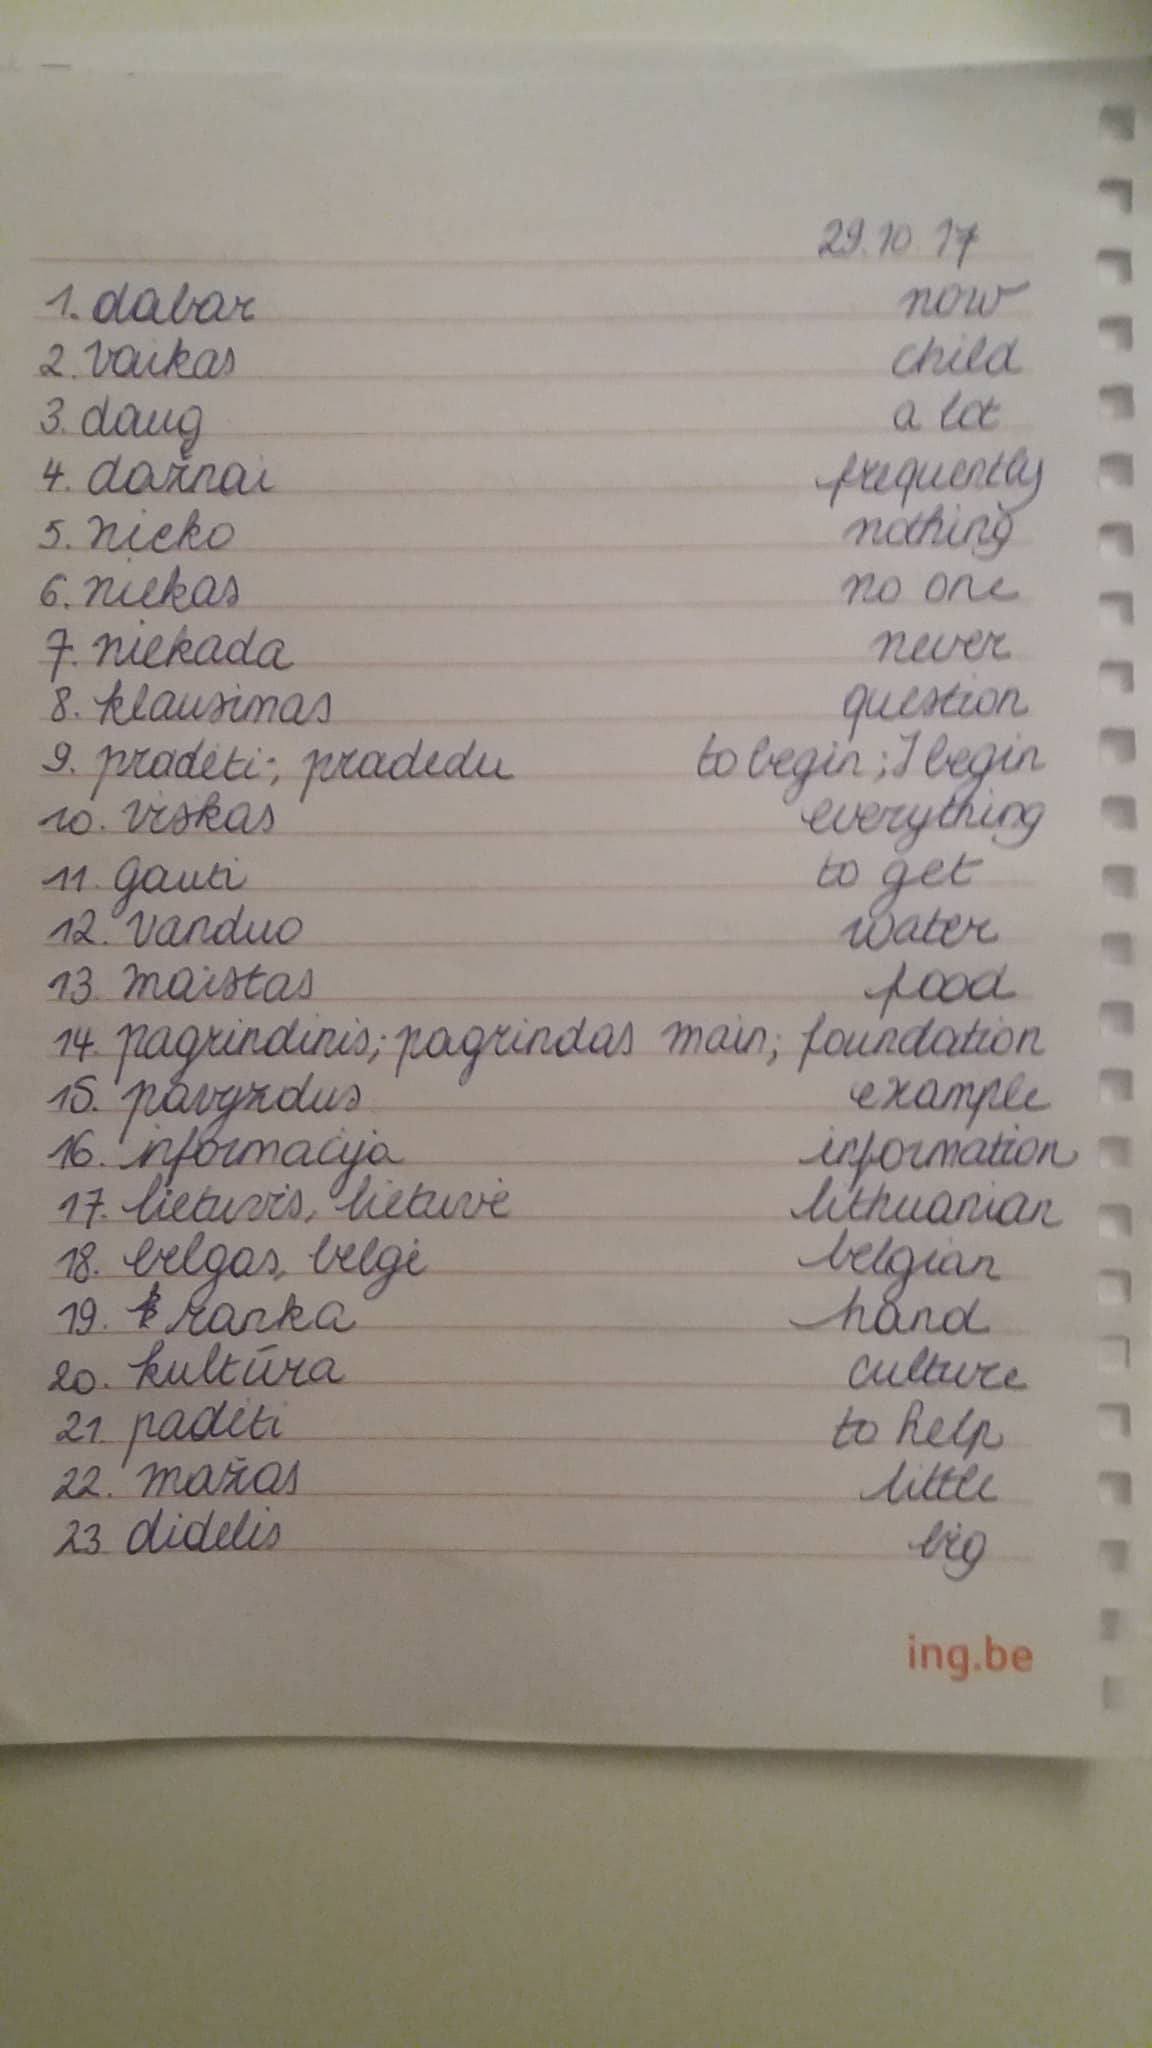 29.10 17
1. dabar now
2. vaikas child
3. daug a lot
4. dažnai frequently
5. nieko nothing
6. niekas no one
7. niekada never
8. klausimas question
9. pradėti; pradedu to begin; I begin
10. viskas everything
11. gauti to get
12. vanduo water
13. maistas food
14. pagrindinis; pagrindas main; foundation
15. pavyzdus example
16. informacija information
17. lietuvis, lietuvė lithuanian
18. belgas, belgė belgian
19. ranka hand
20. kultūra culture
21. padėti to help
22. mažas little
23 didelis big
ing.be